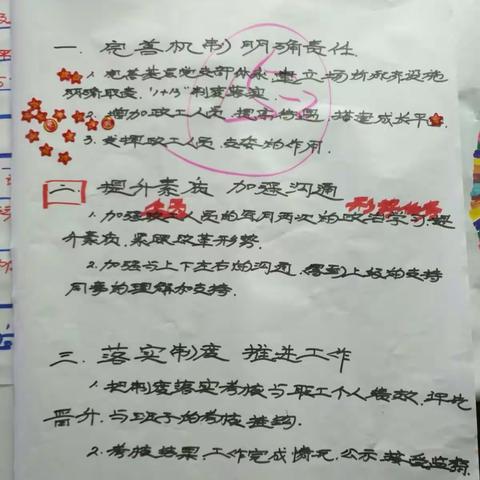 一. 完善机制 明确责任.
1. 完善基层党支部体系, 建立场所及齐设施
明确职责, "1+13"制度落实.
2. 增加政工人员, 提高待遇, 搭建成长平台.
3. 发挥政工人员, 支委的作用.
二. 提升素质 加强沟通
1. 加强政工人员的每月两次的政治学习, 提
升素质, 紧跟改革形势.
2. 加强与上下左右的沟通, 得到上级的支持
同事的理解和支持.
三. 落实制度 推进工作
1. 把制度落实考核与职工个人绩效, 评先
晋升, 与班子的考核挂钩.
2. 考核结果, 工作完成情况, 公示接受监督.